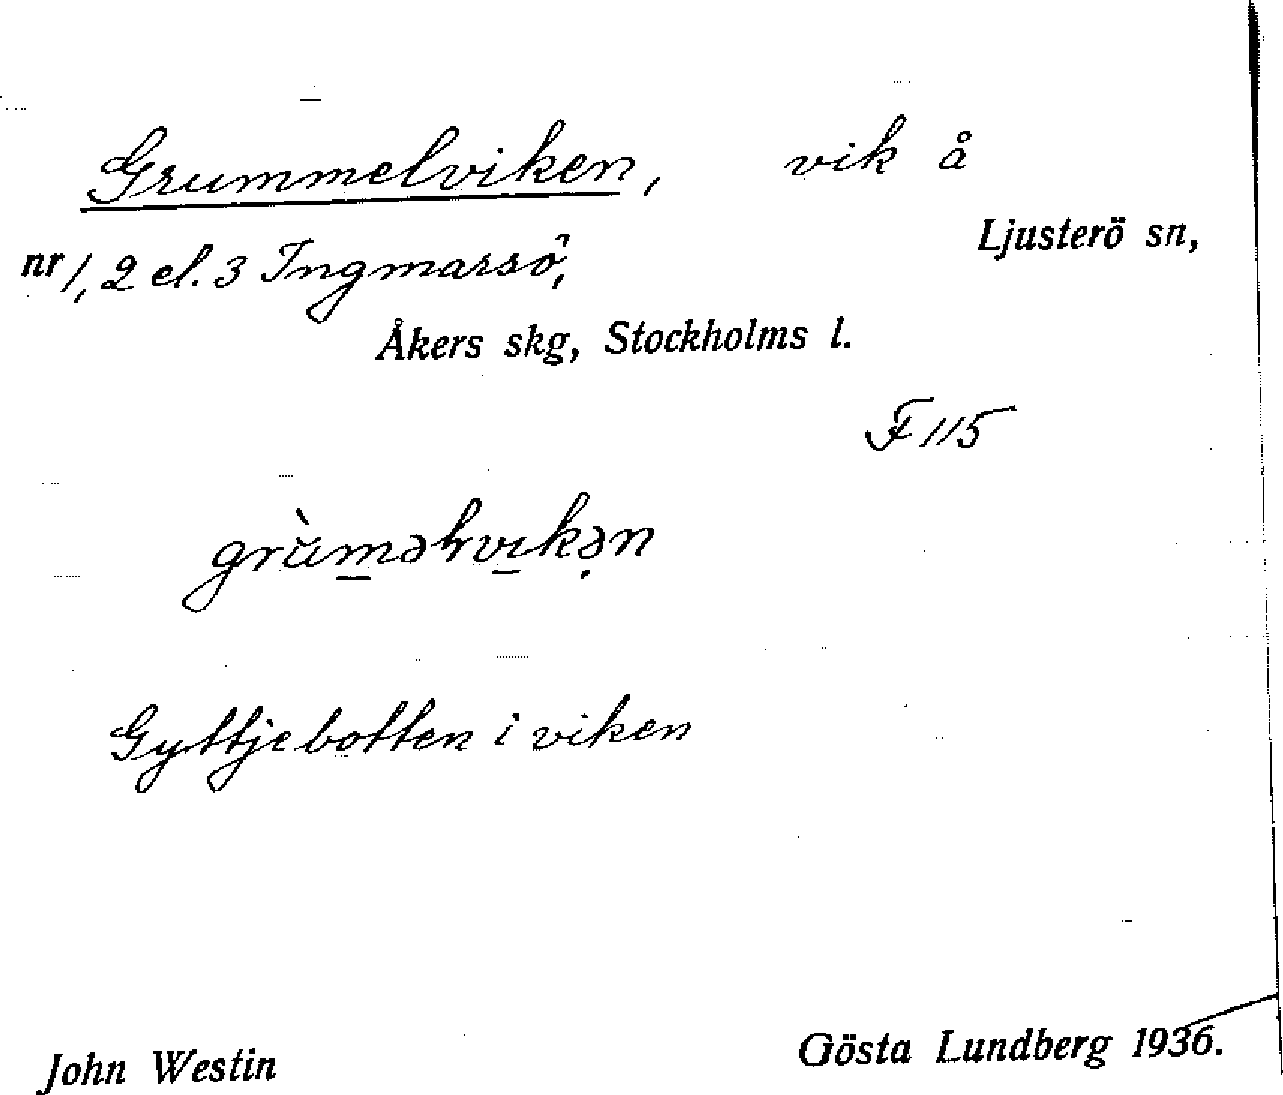 Grummelviken, vik å
Ljusterö sn,
nr 1, 2 el. 3 Ingmarsö,
Åkers skg, Stockholms l.
F 115
Gyttjebotten i viken
John Westin
Gösta Lundberg 1936.